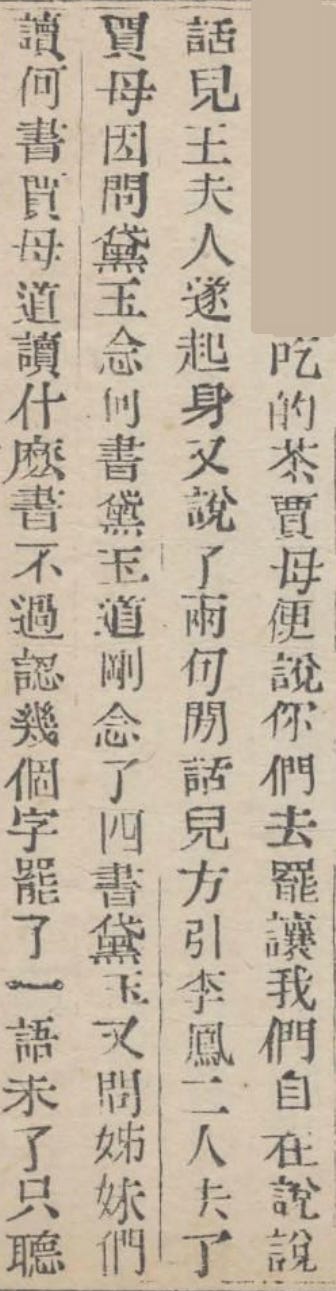 吃的茶賈母便說你們去罷讓我們自在說說
話兒王夫人遂起身又說了兩句閒話兒方引李鳳二人去了
賈母因問黛玉念何書黛玉道剛念了四書黛玉又問姊妹們
讀何書賈母道讀什麽書不過認幾個字罷了一語未了只聽